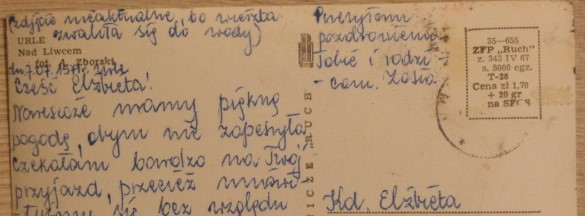 (zdjęcie nieaktualne, bo wierzba
zwaliła się do wody)
URLE
Nad Liwcem
fot. A. Zborski
dn. 7.07.
Cześć Elżbieta!
Nareszcie mamy piękną
pogodę, obym nie zapeszyła.
Czekałam bardzo na Twój
przyjazd, przecież
się bez względu
Przesyłam
pozdrowienia
Tobie i rodzi-
com. Zosia
RUCH
35—655
ZFP „Ruch"
z. 343 IV 67
s. 5000 egz.
T-26
Cena zł 1,70
+ 20 gr
na SFOS
Kol. Elżbieta